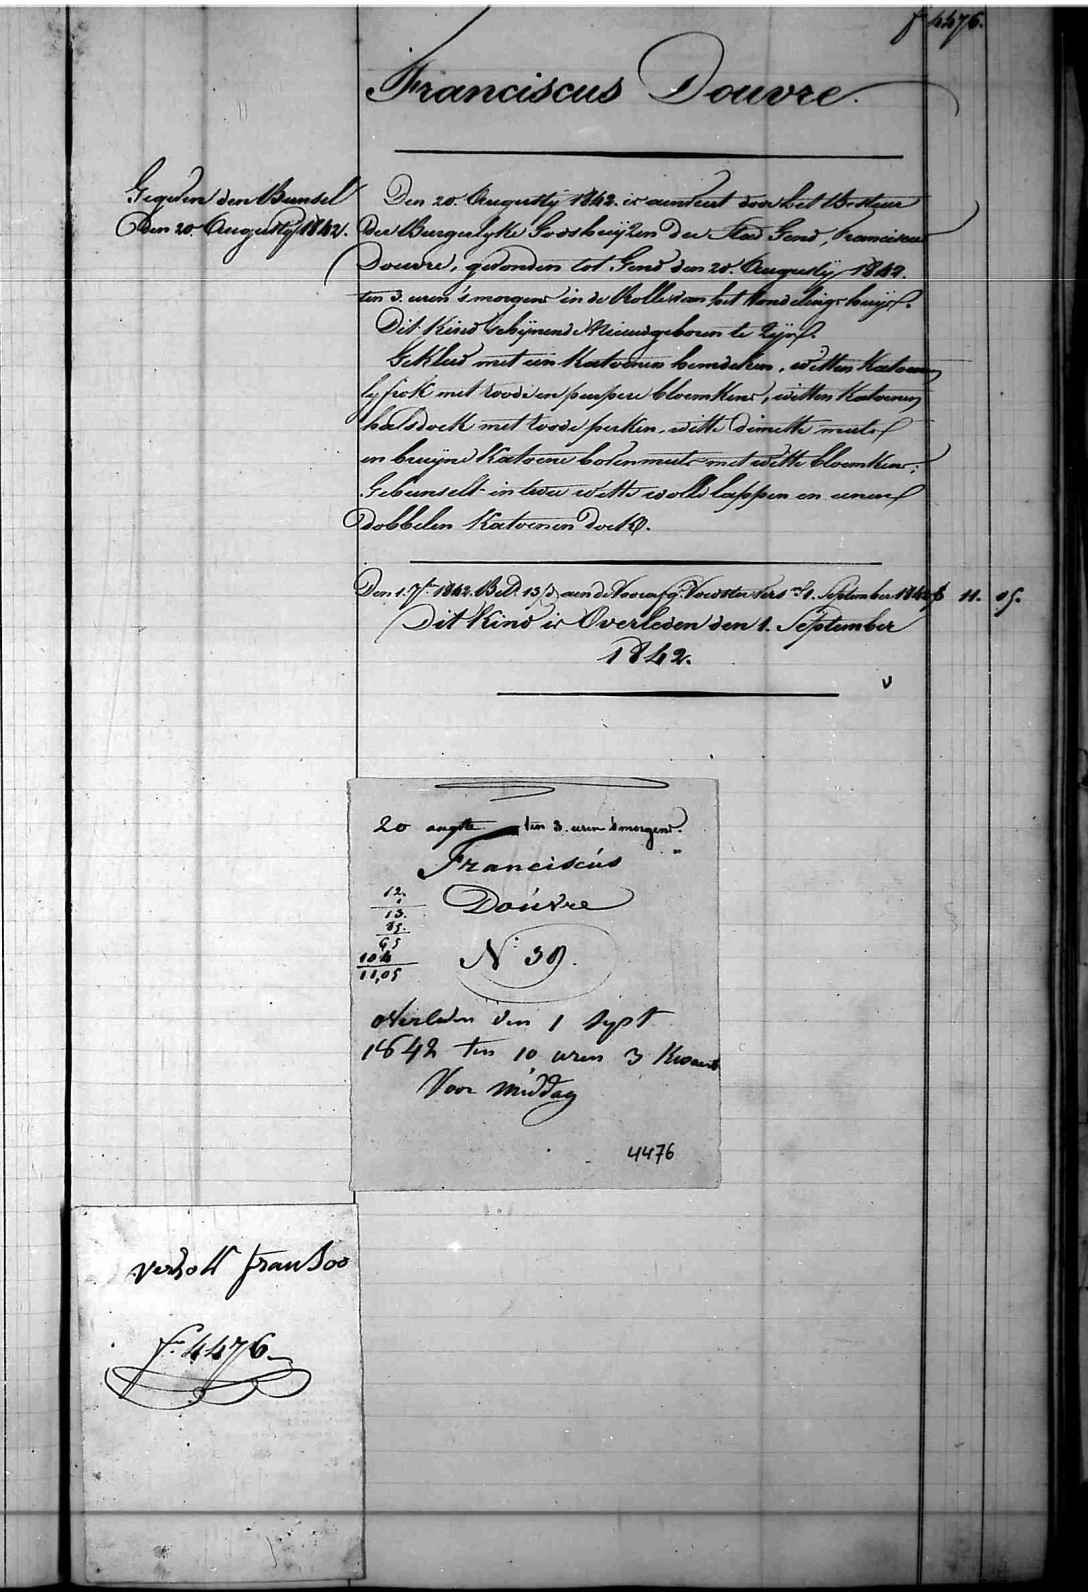 f 4476.
Franciscus Douvre.
Gegeven den Bunsel
Den 20. Augusty 1842.
Den 20. Augusty 1842. is aenveert door het Bestuer
der Burgerlyke Godshuyzen der Stad Gend, Franciscus
Douvre, gevonden tot Gend den 20. Augusty 1842.
ten 3. uren 's morgens in de Rolle van het Vondelings huys.
Dit Kind schynende Nieuwgeboren te Zyn.
Gekleed met een Katoenen hemdeken, witten Katoenen
lyfrok met roode en peupere bloemkens, witten Katoenen
halsdoek met roode perken, witte dimette muts
en bruyne Katoene bovenmuts met witte bloemkens;
Gebunselt in twee witte wolle lappen en eenen
dobbelen Katoenen doek.
Den 1. 7br 1842. Bet. 13 d aen de Voedster 1. September 1842 f 11. 05.
Dit Kind is Overleden den 1. September
1842.
v
20 augte ten 3. uren 's morgens.
Franciscus
Douvre
12.
1
13.
85.
65
104
11,05
N° 39.
overleden den 1 sept
1842 ten 10 uren 3 Kwaert
Voor middag
4476
fransoo
f. 4476.